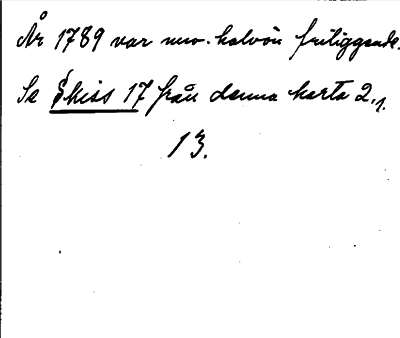 År 1789 var nuv. halvön friliggande.
Se Skiss 17 från denna karta 2.1.
13.